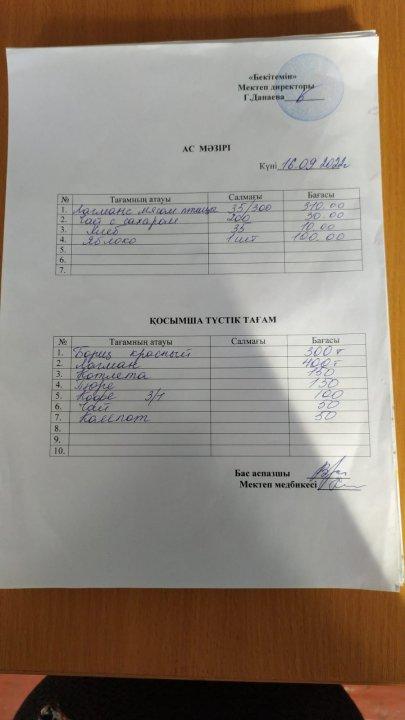 «Бекітемін»
Мектеп директоры
Г.Данаева
АС МӘЗІРІ
Күні 16.09.2022г
№ Тағамның атауы Салмағы Бағасы
1. Лагманс мясом птицы 35/300 310.00
2. Чай с сахаром 200 30.00
3. Хлеб 35 10.00
4. Яблоко 1 шт 100.00
5.
6.
7.
ҚОСЫМША ТҮСТІК ТАҒАМ
№ Тағамның атауы Салмағы Бағасы
1. Борщ красный 300т
2. Лагман 400т
3. Котлета 150
4. Пюре 150
5. Кофе 3/1 100
6. Чай 50
7. Компот 50
8.
9.
10.
Бас аспазшы
Мектеп медбикесі